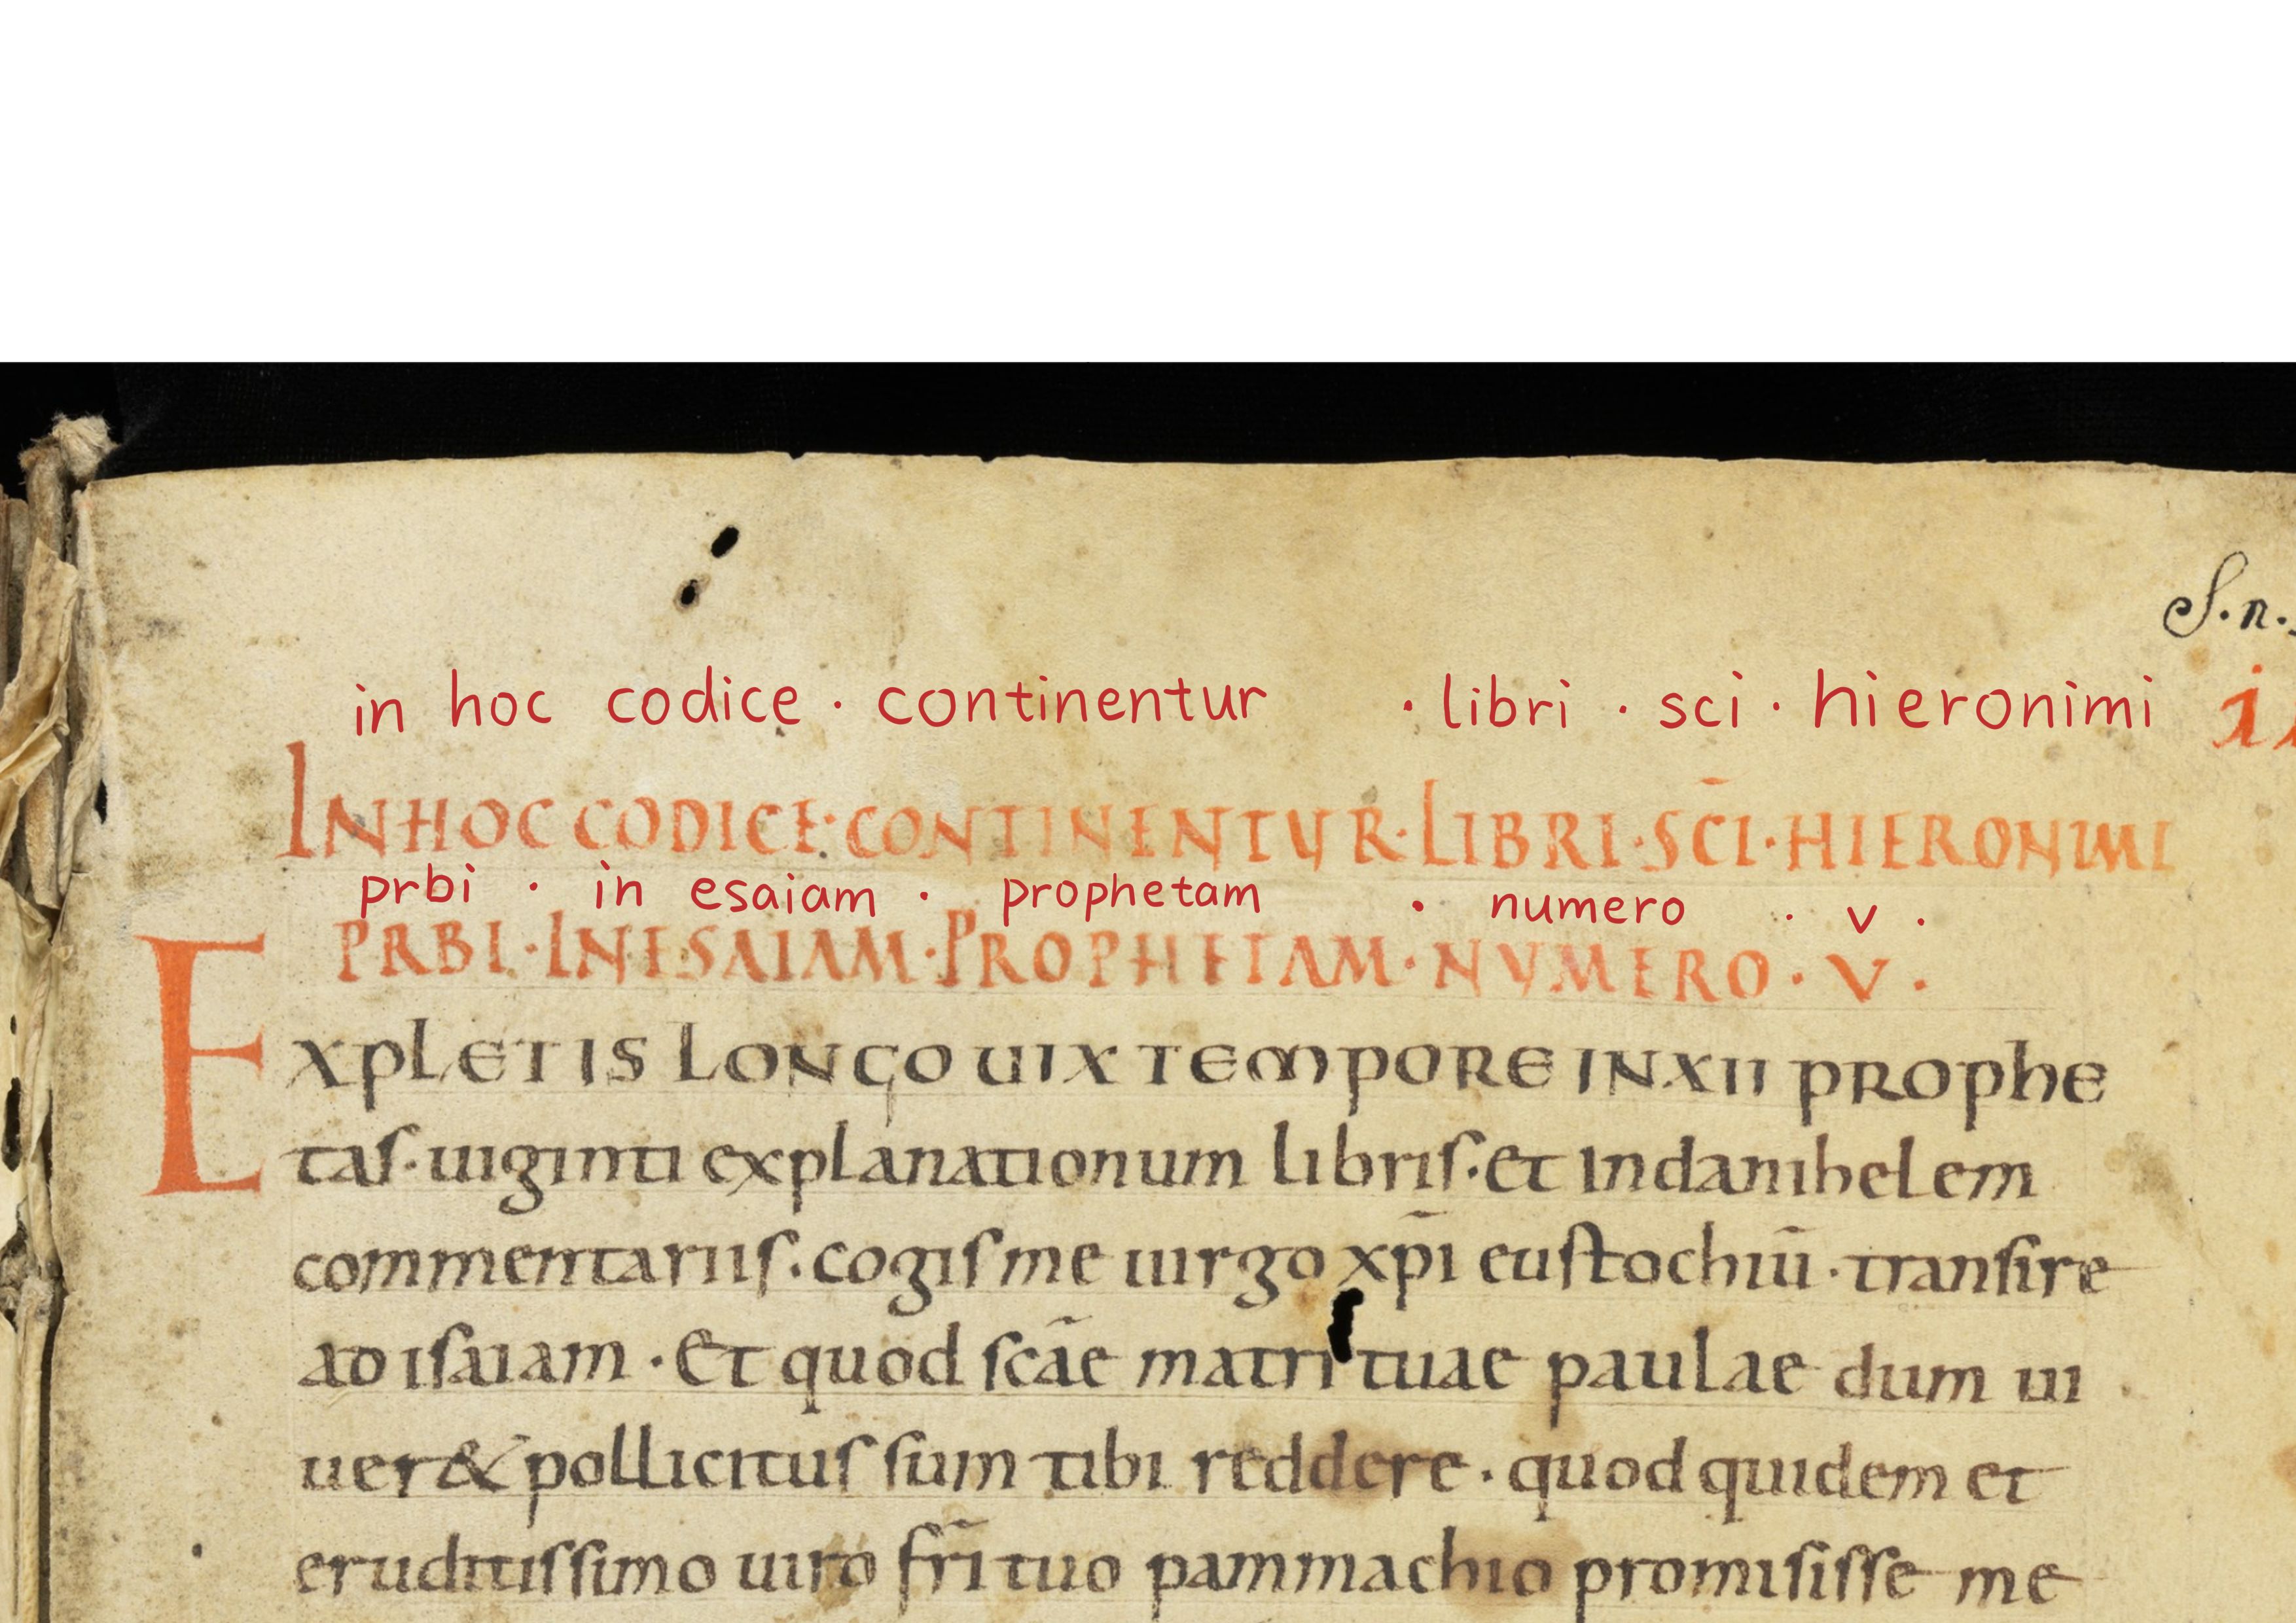 S. n.
in hoc codice · continentur · libri · sci · hieronimi
INHOC CODICE· CONTINENTUR· LIBRI· SC̄I· HIERONIMI
prbi · in esaiam · prophetam · numero · v ·
PRBI· INESAIAM· PROPHETAM· NVMERO · V ·
EXPLETIS LONGO UIX TEMPORE INXII PROPHE
taſ· uiginti explanationum libriſ· et Indanihelem
commentariiſ· cogiſ me uirgo xp̄i euſtochiū · tranſire
ad iſaiam · Et quod ſcāe matri tuae paulae dum ui
uer& pollicituſ ſum tibi reddere · quod quidem et
eruditiſſimo uiro fr̄i tuo pammachio promiſiſſe me